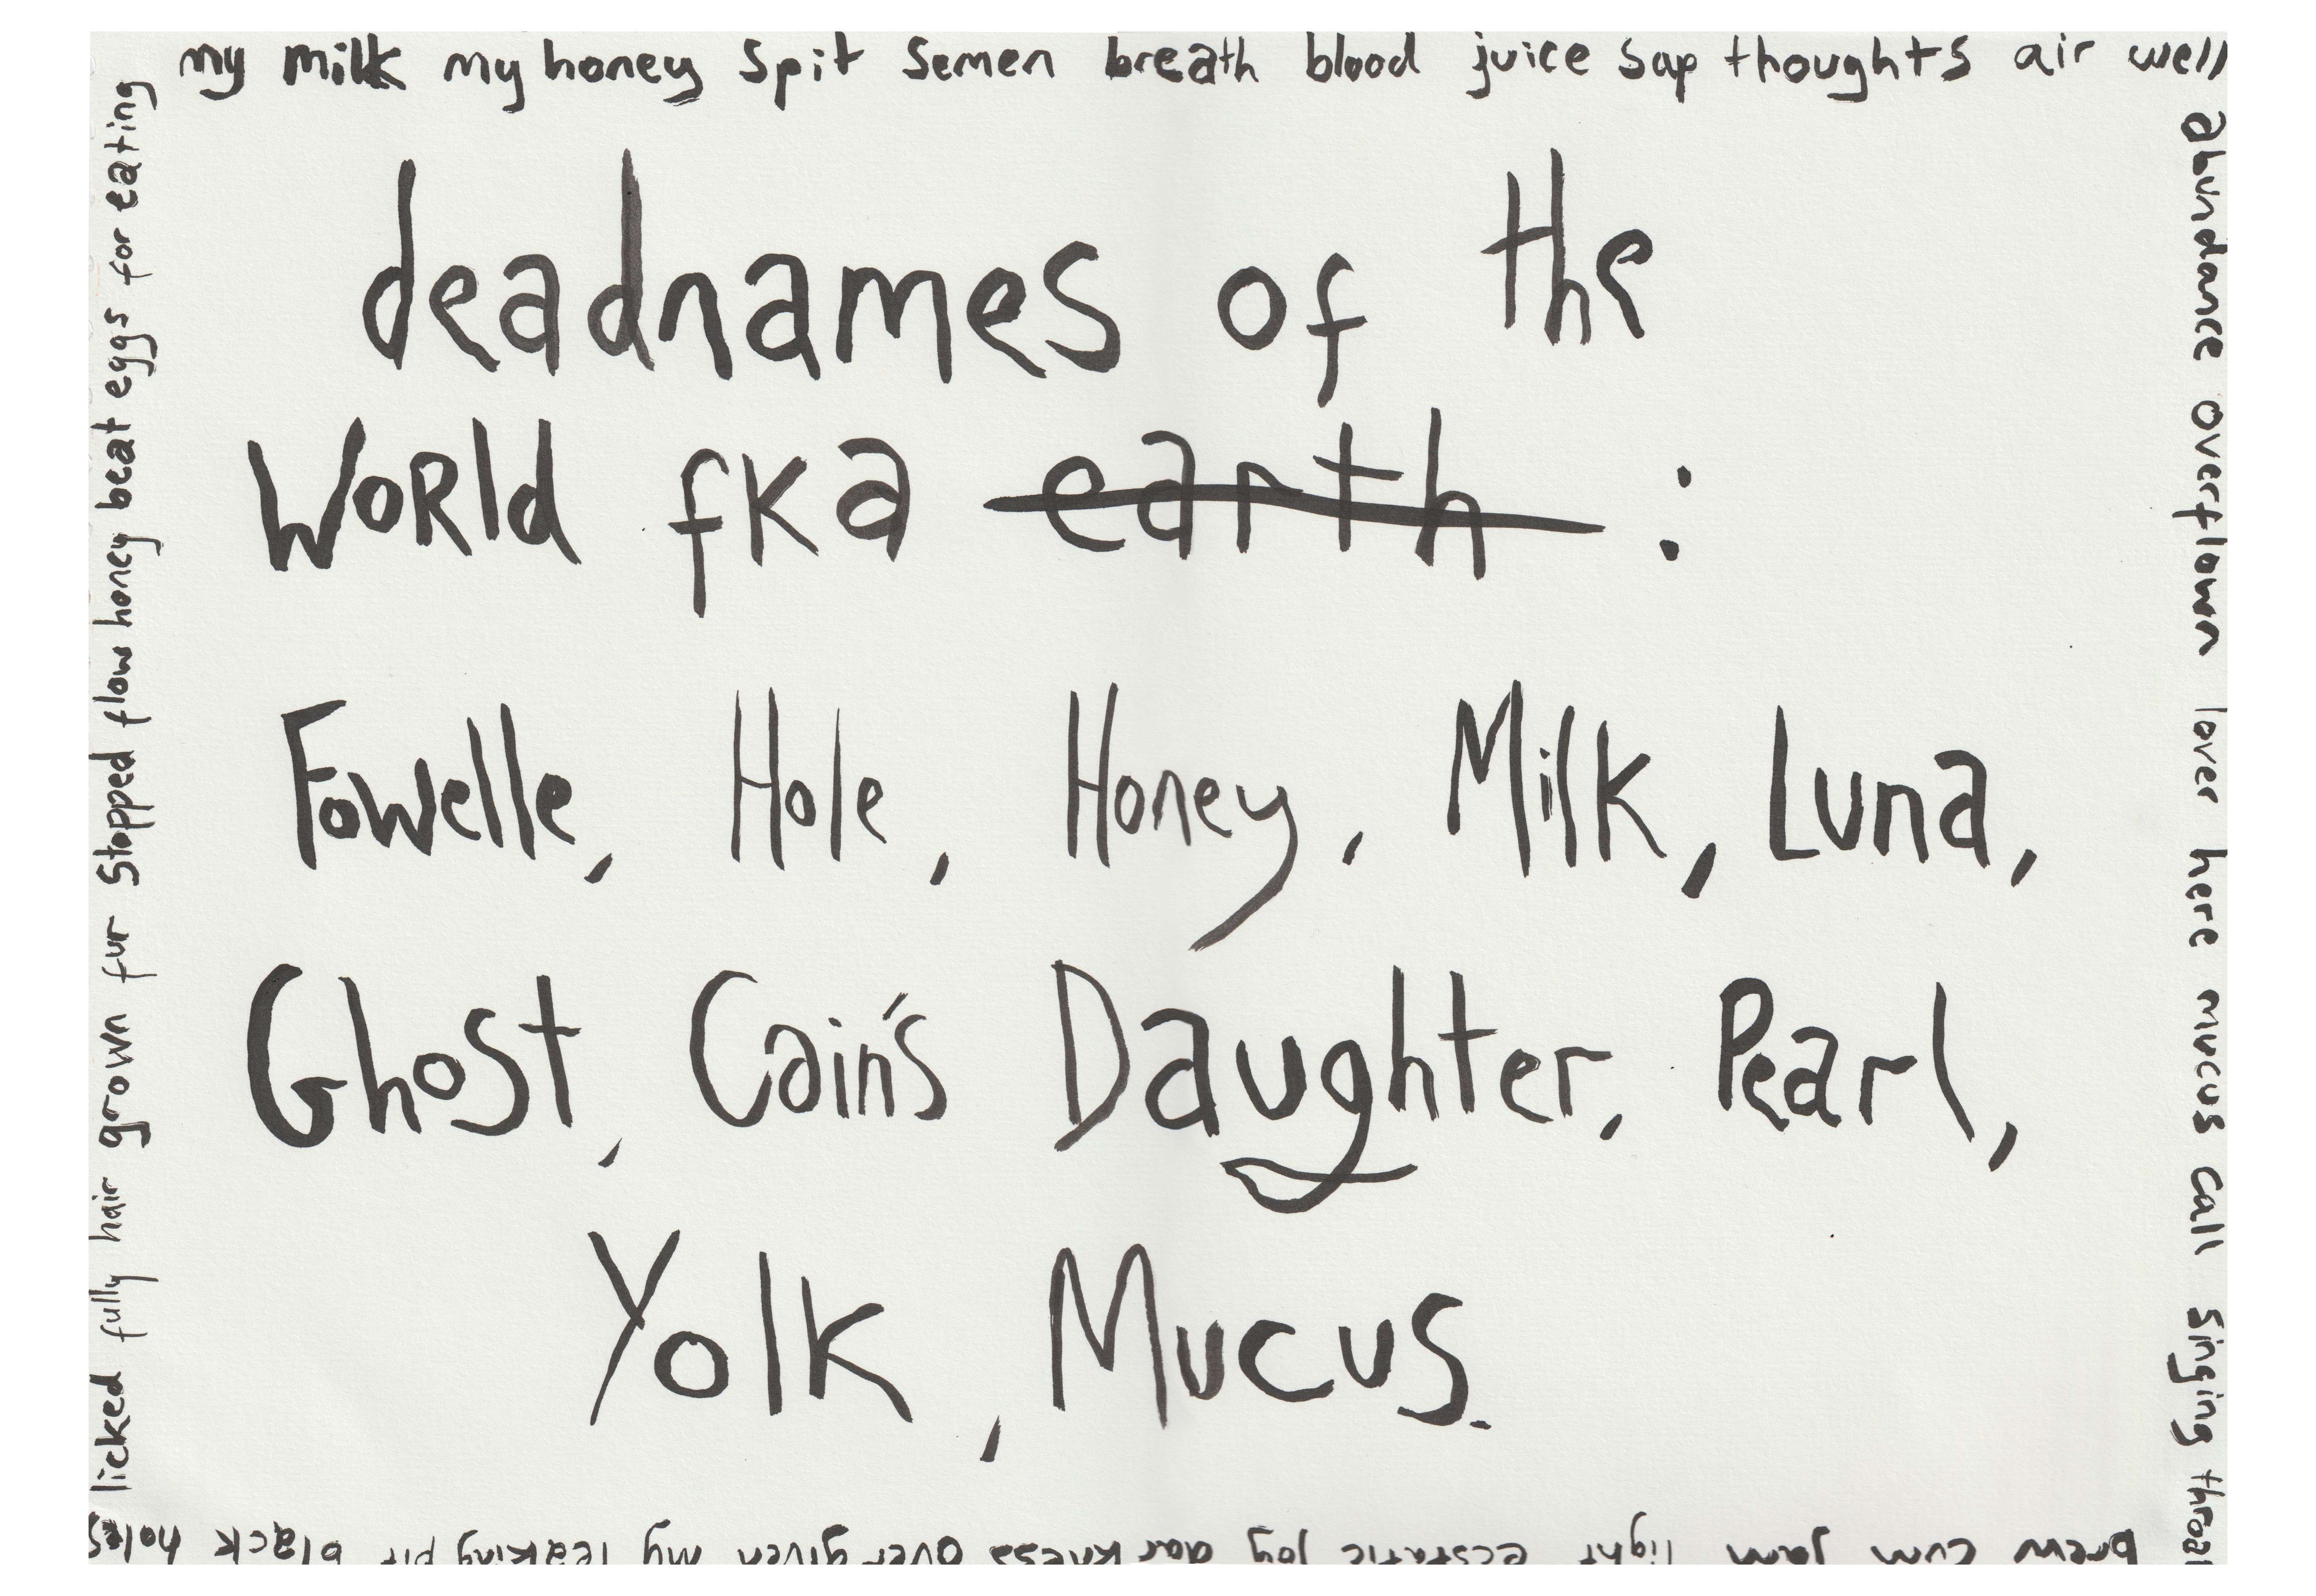 my milk my honey spit semen breath blood juice sap thoughts air well
abundance overflown lover here mucus call singing throat
brew cum jam light ecstatic joy darkness over given my leaking pit black holes
licked fully hair grown fur stopped flow honey beat eggs for eating
deadnames of the
World fka earth :
Fowelle, Hole, Honey, Milk, Luna,
Ghost, Cain's Daughter, Pearl,
Yolk, Mucus.